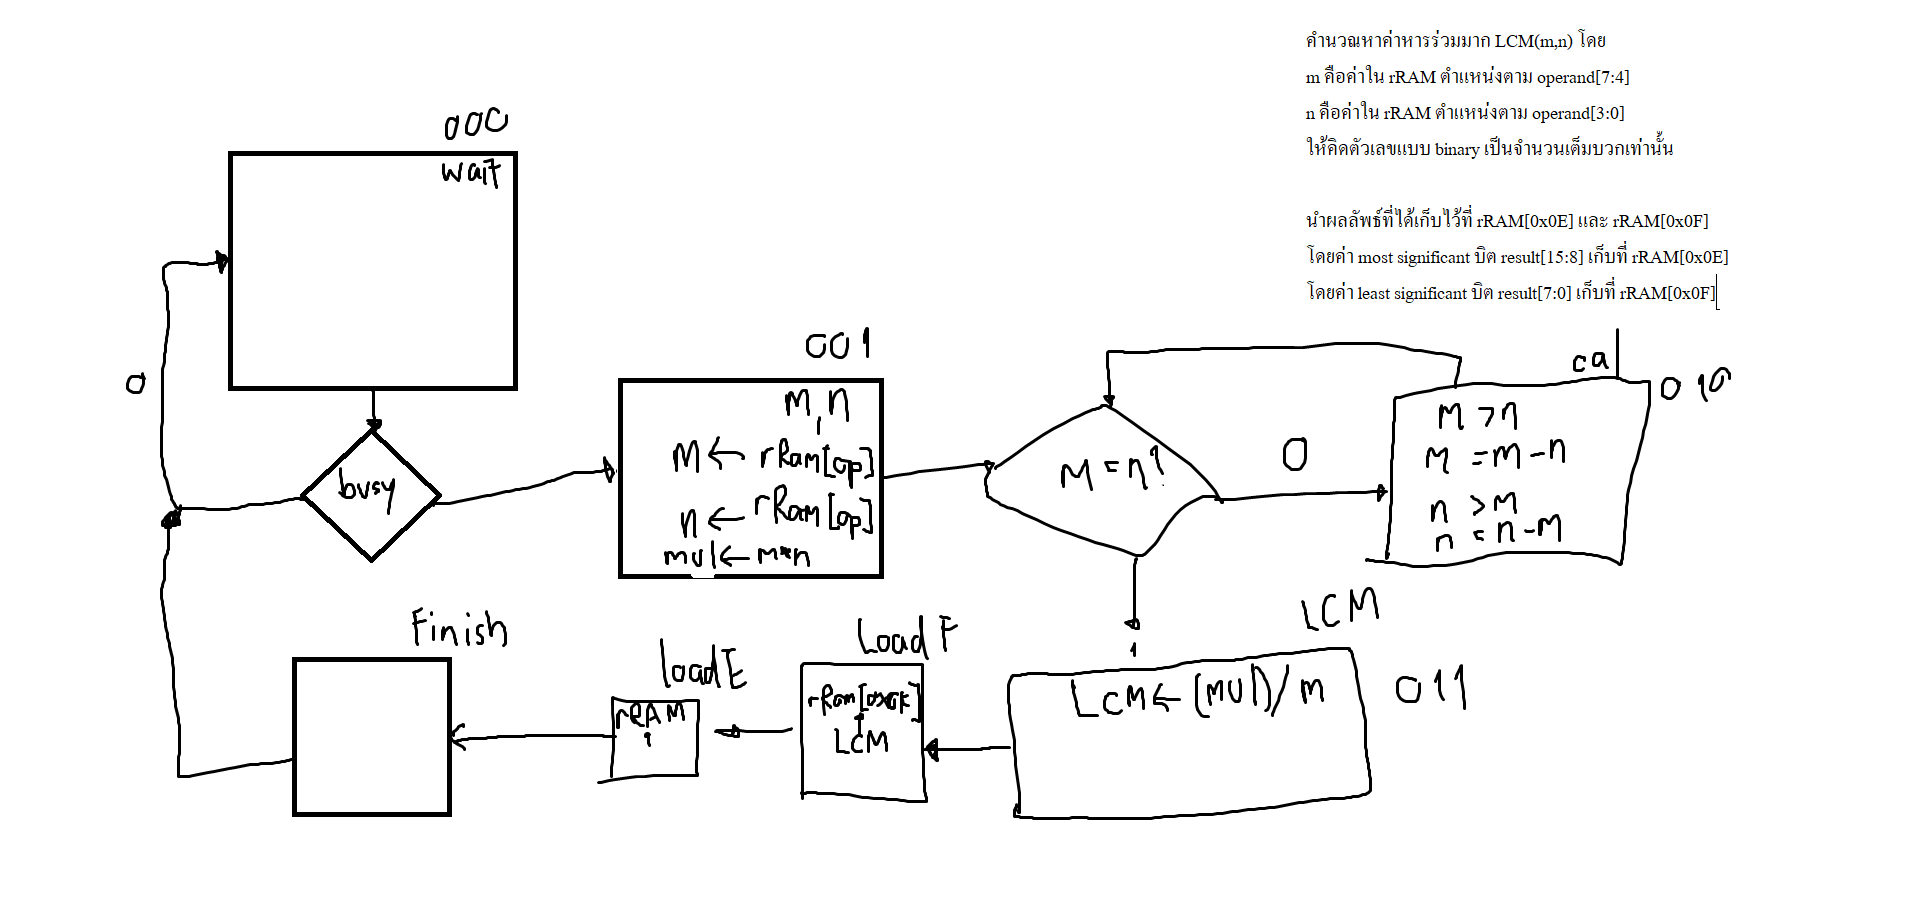 คำนวณหาค่าหารร่วมมาก LCM(m,n) โดย
m คือค่าใน rRAM ตำแหน่งตาม operand[7:4]
n คือค่าใน rRAM ตำแหน่งตาม operand[3:0]
ให้คิดตัวเลขแบบ binary เป็นจำนวนเต็มบวกเท่านั้น
นำผลลัพธ์ที่ได้เก็บไว้ที่ rRAM[0x0E] และ rRAM[0x0F]
โดยค่า most significant บิต result[15:8] เก็บที่ rRAM[0x0E]
โดยค่า least significant บิต result[7:0] เก็บที่ rRAM[0x0F]
000
wait
0
busy
001
m,n
m ← rRam[op]
n ← rRam[op]
mul ← m*n
m = n?
0
1
ca
010
m > n
m = m - n
n > m
n = n - m
LCM
011
LCM ← (mul)/m
Load F
LCM
load E
rRAM
Finish